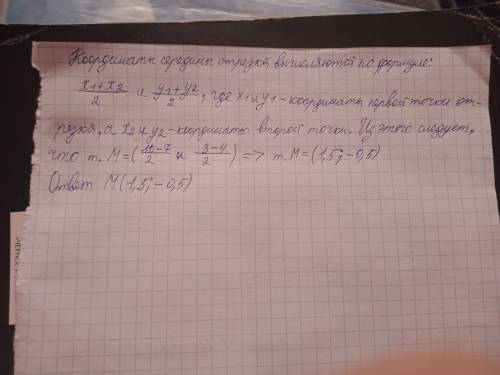 Координаты середины отрезка вычисляются по формуле:
x1+x2/2 и y1+y2/2, где x1 и y1-координаты первой точки от-
резка, а x2 и y2-координаты второй точки. Из этого следует,
что т. M=(10-7/2 и 3-4/2) => т. M=(1,5; -0,5)
Ответ: M(1,5; -0,5)